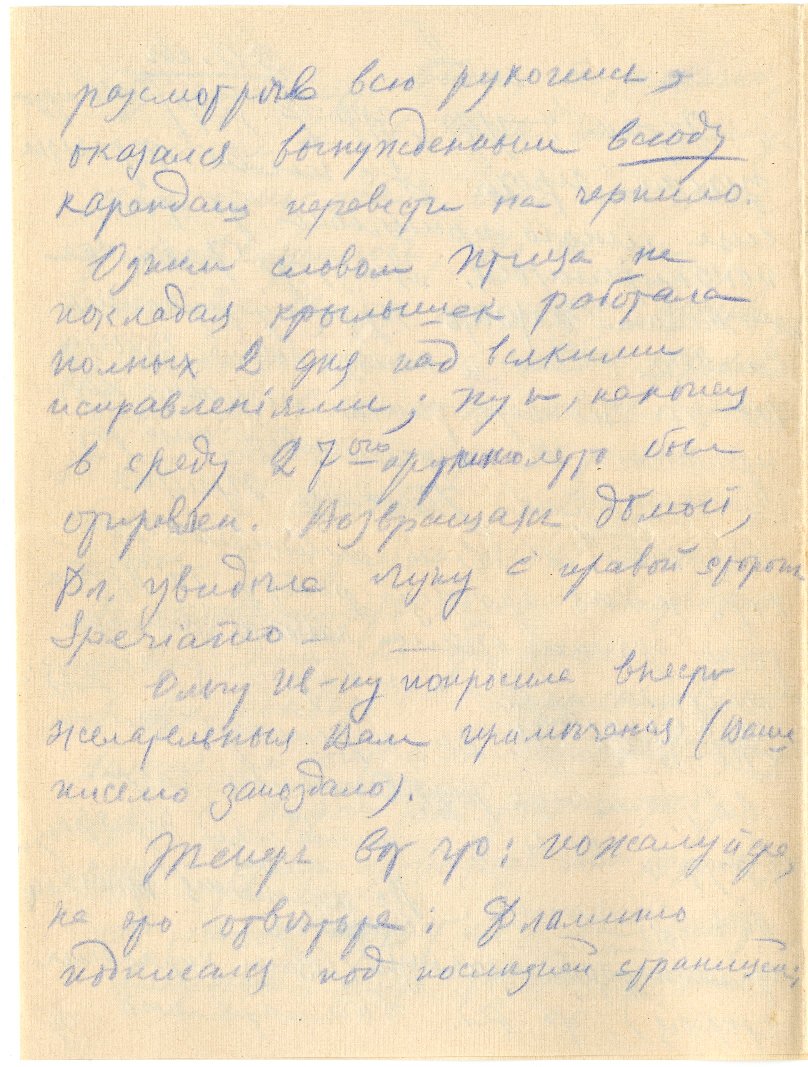 разсмотрѣв всю рукопись,
оказался вынужденным всюду
карандаш перевести на чернило.
Одним словом птица не
покладая крылышек работала
полных 2 дня над всякими
исправленіями; ну и, наконец
в среду 27ого был
отправлен. Возвращаясь домой,
Фл. увидѣла луну с правой стороны
Speriamo —
Ольгу Ив-ну попросила внести
желательныя Вам примѣчания (Ваше
письмо запоздало).
Теперь вот что: пожалуйста,
на это отвѣтьте: Фламинго
подписался под последней страницей;